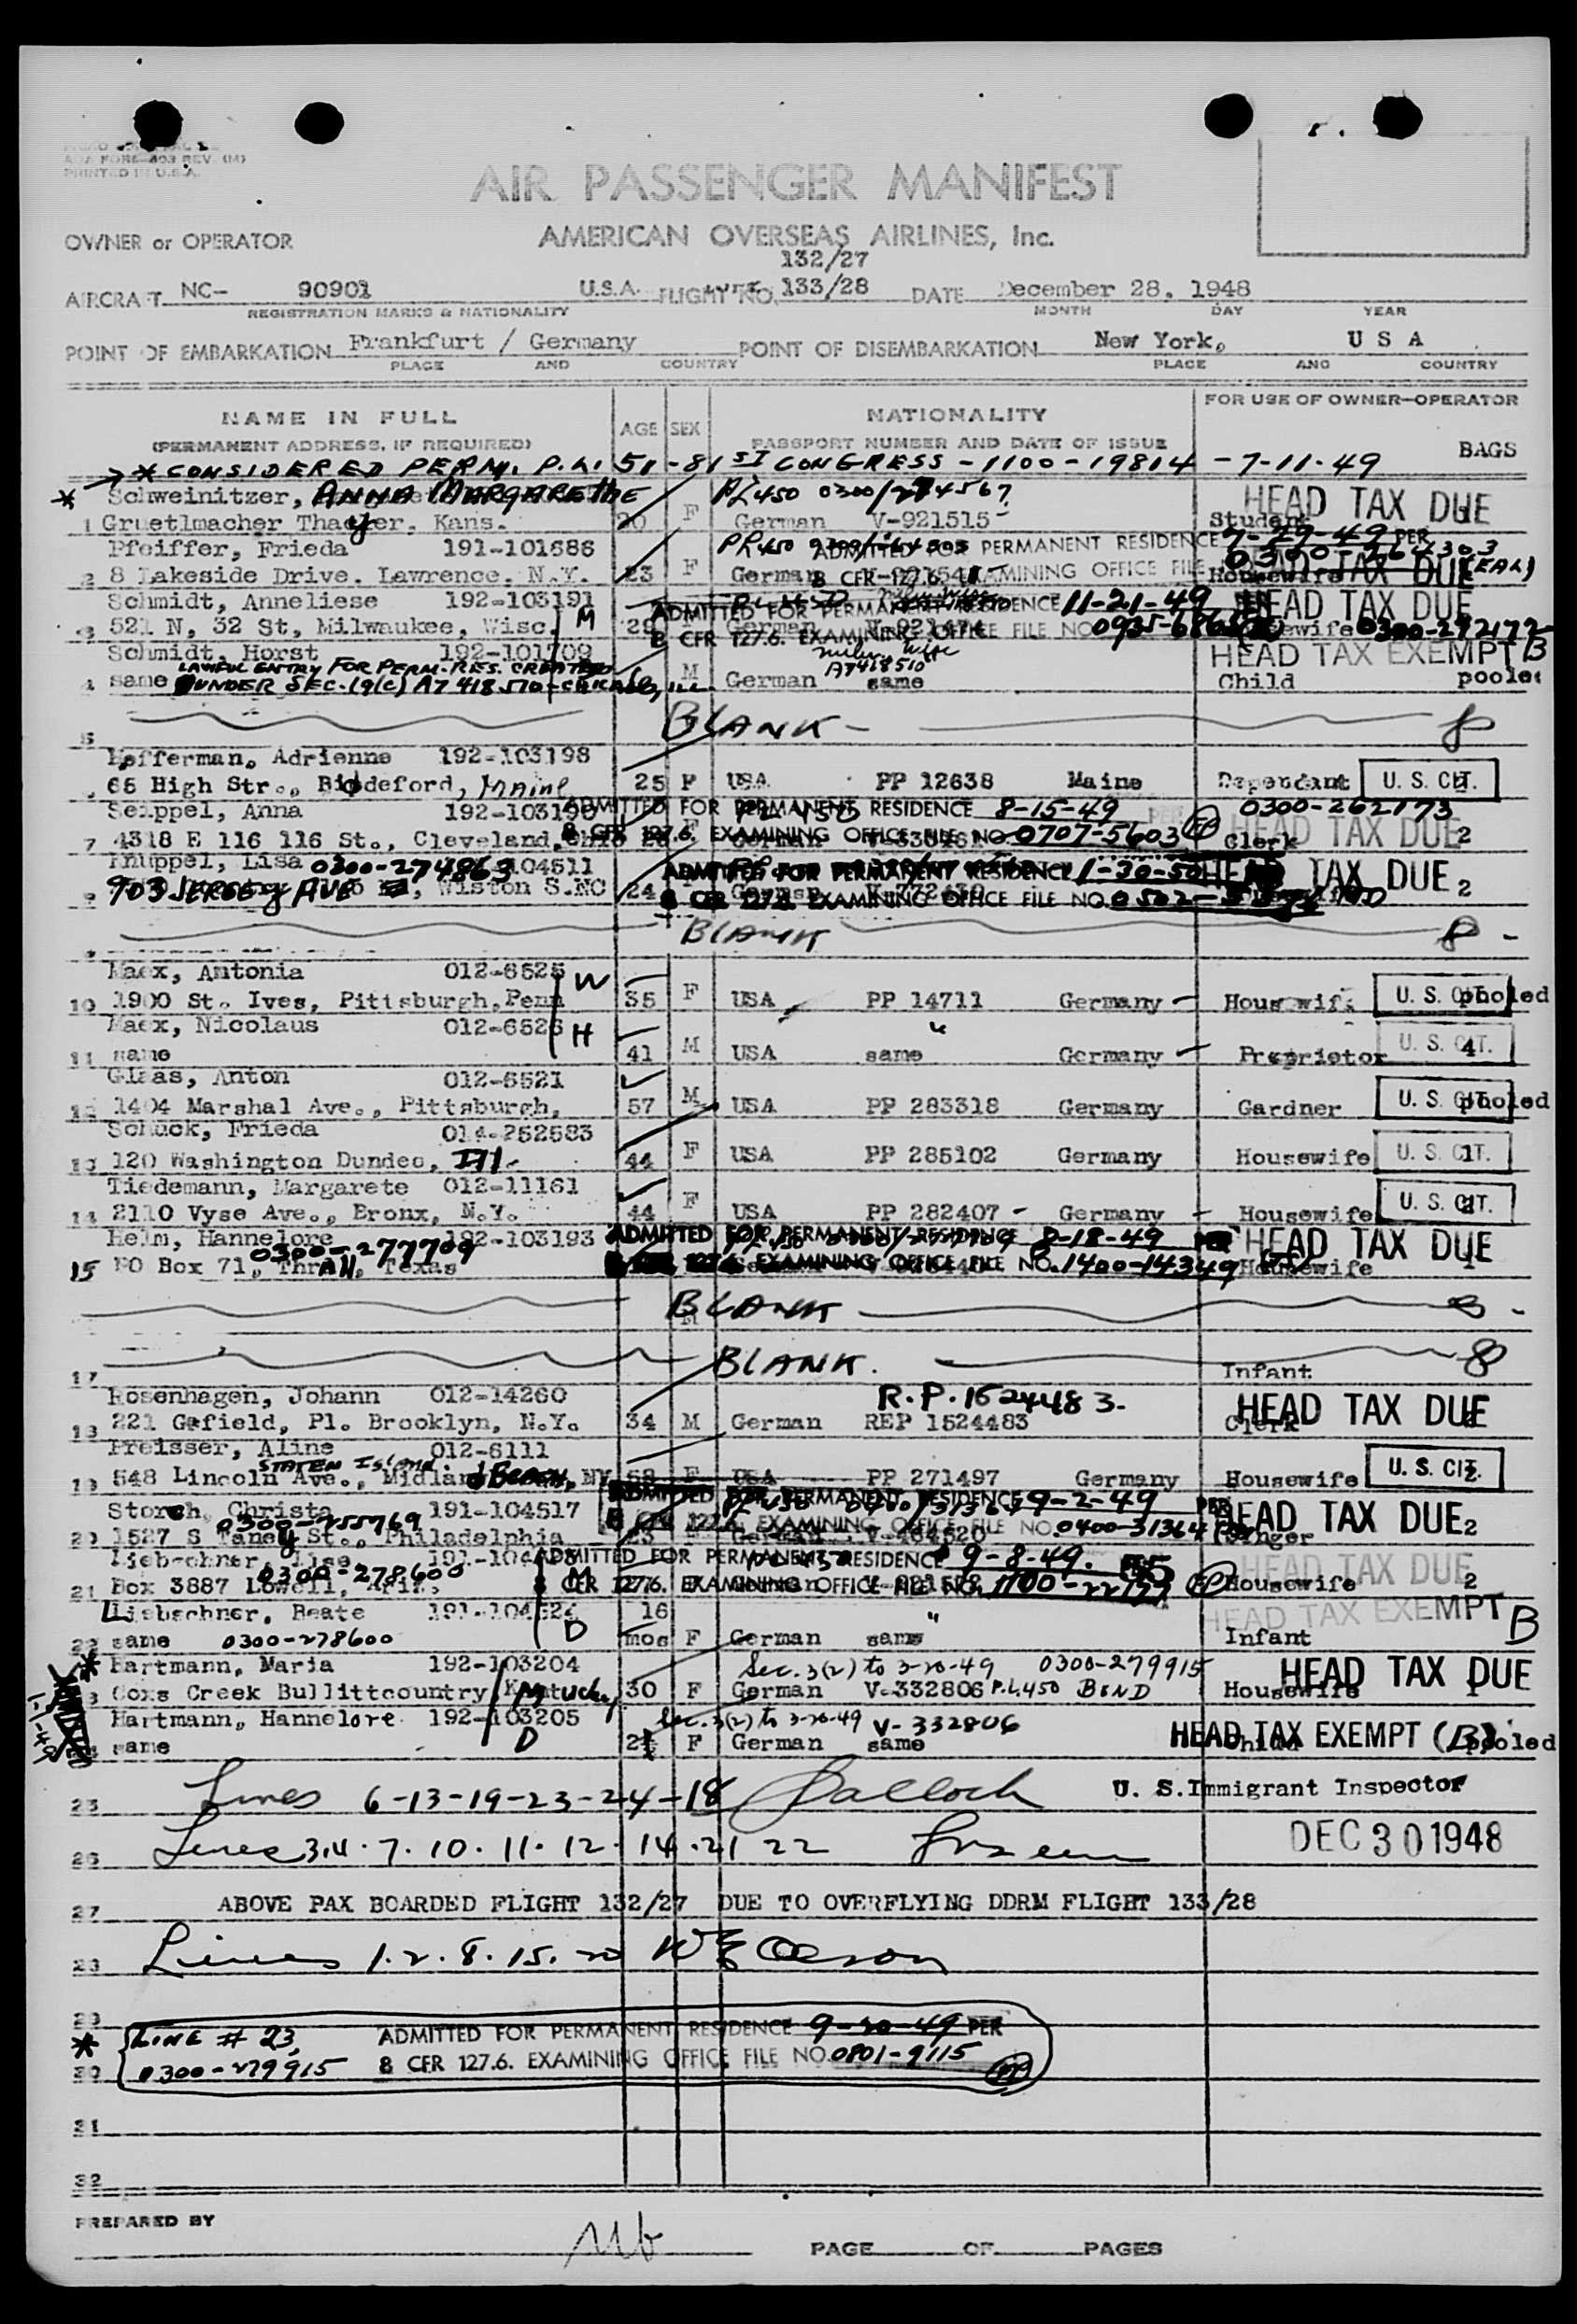 ADA FORM-403 REV. (M)
PRINTED IN U.S.A.
AIR PASSENGER MANIFEST
OWNER or OPERATOR
AMERICAN OVERSEAS AIRLINES, Inc.
132/27
AIRCRAFT NC- 90901 U.S.A. FLIGHT NO. 133/28 DATE December 28, 1948
REGISTRATION MARKS & NATIONALITY MONTH DAY YEAR
POINT OF EMBARKATION Frankfurt / Germany POINT OF DISEMBARKATION New York, U S A
PLACE AND COUNTRY PLACE AND COUNTRY
NAME IN FULL AGE SEX NATIONALITY FOR USE OF OWNER-OPERATOR
(PERMANENT ADDRESS, IF REQUIRED) PASSPORT NUMBER AND DATE OF ISSUE BAGS
→ * CONSIDERED PERM. P.L. 51-81ST CONGRESS - 1100-19814 - 7-11-49
* Schweinitzer, ANNA MARGARETHE PL450 0300/274567 HEAD TAX DUE
1 Gruetlmacher Thayer, Kans. 20 F German V-921515 Student
Pfeiffer, Frieda 191-101686 ADMITTED FOR PERMANENT RESIDENCE 7-29-49 PER
2 8 Lakeside Drive. Lawrence, N.Y. 23 F German 8 CFR-127.6. EXAMINING OFFICE FILE Housewife HEAD TAX DUE
Schmidt, Anneliese 192-103191 M ADMITTED FOR PERMANENT RESIDENCE 11-21-49 HEAD TAX DUE
3 521 N, 32 St, Milwaukee, Wisc. 29 German V-921474 8 CFR 127.6. EXAMINING OFFICE FILE NO 0300-292172
Schmidt, Horst 192-101709 HEAD TAX EXEMPT B
LAWFUL ENTRY FOR PERM. RES. CREATED A7418510
4 same UNDER SEC. 19(c) A7 418 510-CHICAGO, ILL. M German same Child pooled
5 BLANK
Hefferman, Adrienne 192-103198
65 High Str., Biddeford, Maine 25 F USA PP 12638 Maine Dependant U. S. CIT.
Seippel, Anna ADMITTED FOR PERMANENT RESIDENCE 8-15-49 PER 0300-262173
7 4318 E 116 116 St., Cleveland, Ohio 8 CFR 127.6. EXAMINING OFFICE FILE NO. 0707-5603 Clerk HEAD TAX DUE 2
Knuppel, Lisa 0300-274863 104511 ADMITTED FOR PERMANENT RESIDENCE 1-30-50 HEAD TAX DUE 2
903 JERSEY AVE, Wiston S.NC 24 German V-772430 8 CFR 127.6. EXAMINING OFFICE FILE NO.
BLANK
Maex, Antonia 012-6525 W
10 1900 St. Ives, Pittsburgh, Penn 35 F USA PP 14711 Germany Housewife U. S. CIT. pooled
Maex, Nicolaus 012-6526 H
11 same 41 M USA same Germany Proprietor U. S. CIT. 4
Glaas, Anton 012-6521
12 1404 Marshal Ave., Pittsburgh, 57 M USA PP 283318 Germany Gardner U. S. CIT. pooled
Schuck, Frieda 014-252583
13 120 Washington Dundee, Ill. 44 F USA PP 285102 Germany Housewife U. S. CIT. 1
Tiedemann, Margarete 012-11161
14 2110 Vyse Ave., Bronx, N.Y. 44 F USA PP 282407 Germany Housewife U. S. CIT.
Helm, Hannelore 192-103193 ADMITTED FOR PERMANENT RESIDENCE 8-18-49 PER HEAD TAX DUE
0300-277709
15 PO Box 71, Thrall, Texas 127.6. EXAMINING OFFICE FILE NO. 1400-14349 Housewife
BLANK
17 BLANK. Infant
Rosenhagen, Johann 012-14260 R.P. 1524483. HEAD TAX DUE
18 221 Gafield, Pl. Brooklyn, N.Y. 34 M German REP 1524483 Clerk
Preisser, Aline 012-6111
STATEN ISLAND
19 548 Lincoln Ave., Midland BEACH, NY 58 F USA PP 271497 Germany Housewife U. S. CIT.
Storch, Christa 191-104517 ADMITTED FOR PERMANENT RESIDENCE 9-2-49 PER HEAD TAX DUE 2
0300-255769
20 1527 S Taney St., Philadelphia 23 8 CFR 127.6. EXAMINING OFFICE FILE NO. 0400-31364
Liebschner, Lise ADMITTED FOR PERMANENT RESIDENCE 9-8-49. HEAD TAX DUE
0300-278600
21 Box 3887 Lowell, Ariz. M 8 CFR 127.6. EXAMINING OFFICE FILE NO. 1100-22177 Housewife 2
Liebschner, Beate 191-104524 16 HEAD TAX EXEMPT B
22 same 0300-278600 D mos F German same Infant
* Hartmann, Maria 192-103204 Sec. 3(2) to 3-20-49 0300-279915 HEAD TAX DUE
Coxs Creek Bullittcountry, Kentucky 30 F German V-332806 P.L. 450 BOND Housewife 1
Hartmann, Hannelore 192-103205 Sec. 3(2) to 3-20-49 V-332806
same D F German same Child HEAD TAX EXEMPT (B) pooled
ADMITTED
25 Lines 6-13-19-23-24-18 U. S. Immigrant Inspector
26 Lines 3.4.7.10.11.12.14.21 22 DEC 30 1948
27 ABOVE PAX BOARDED FLIGHT 132/27 DUE TO OVERFLYING DDRM FLIGHT 133/28
28 Lines 1.2.8.15.20
29
* LINE # 23, ADMITTED FOR PERMANENT RESIDENCE 9-20-49 PER
30 0300-279915 8 CFR 127.6. EXAMINING OFFICE FILE NO. 0801-9115
31
32
PREPARED BY
PAGE OF PAGES